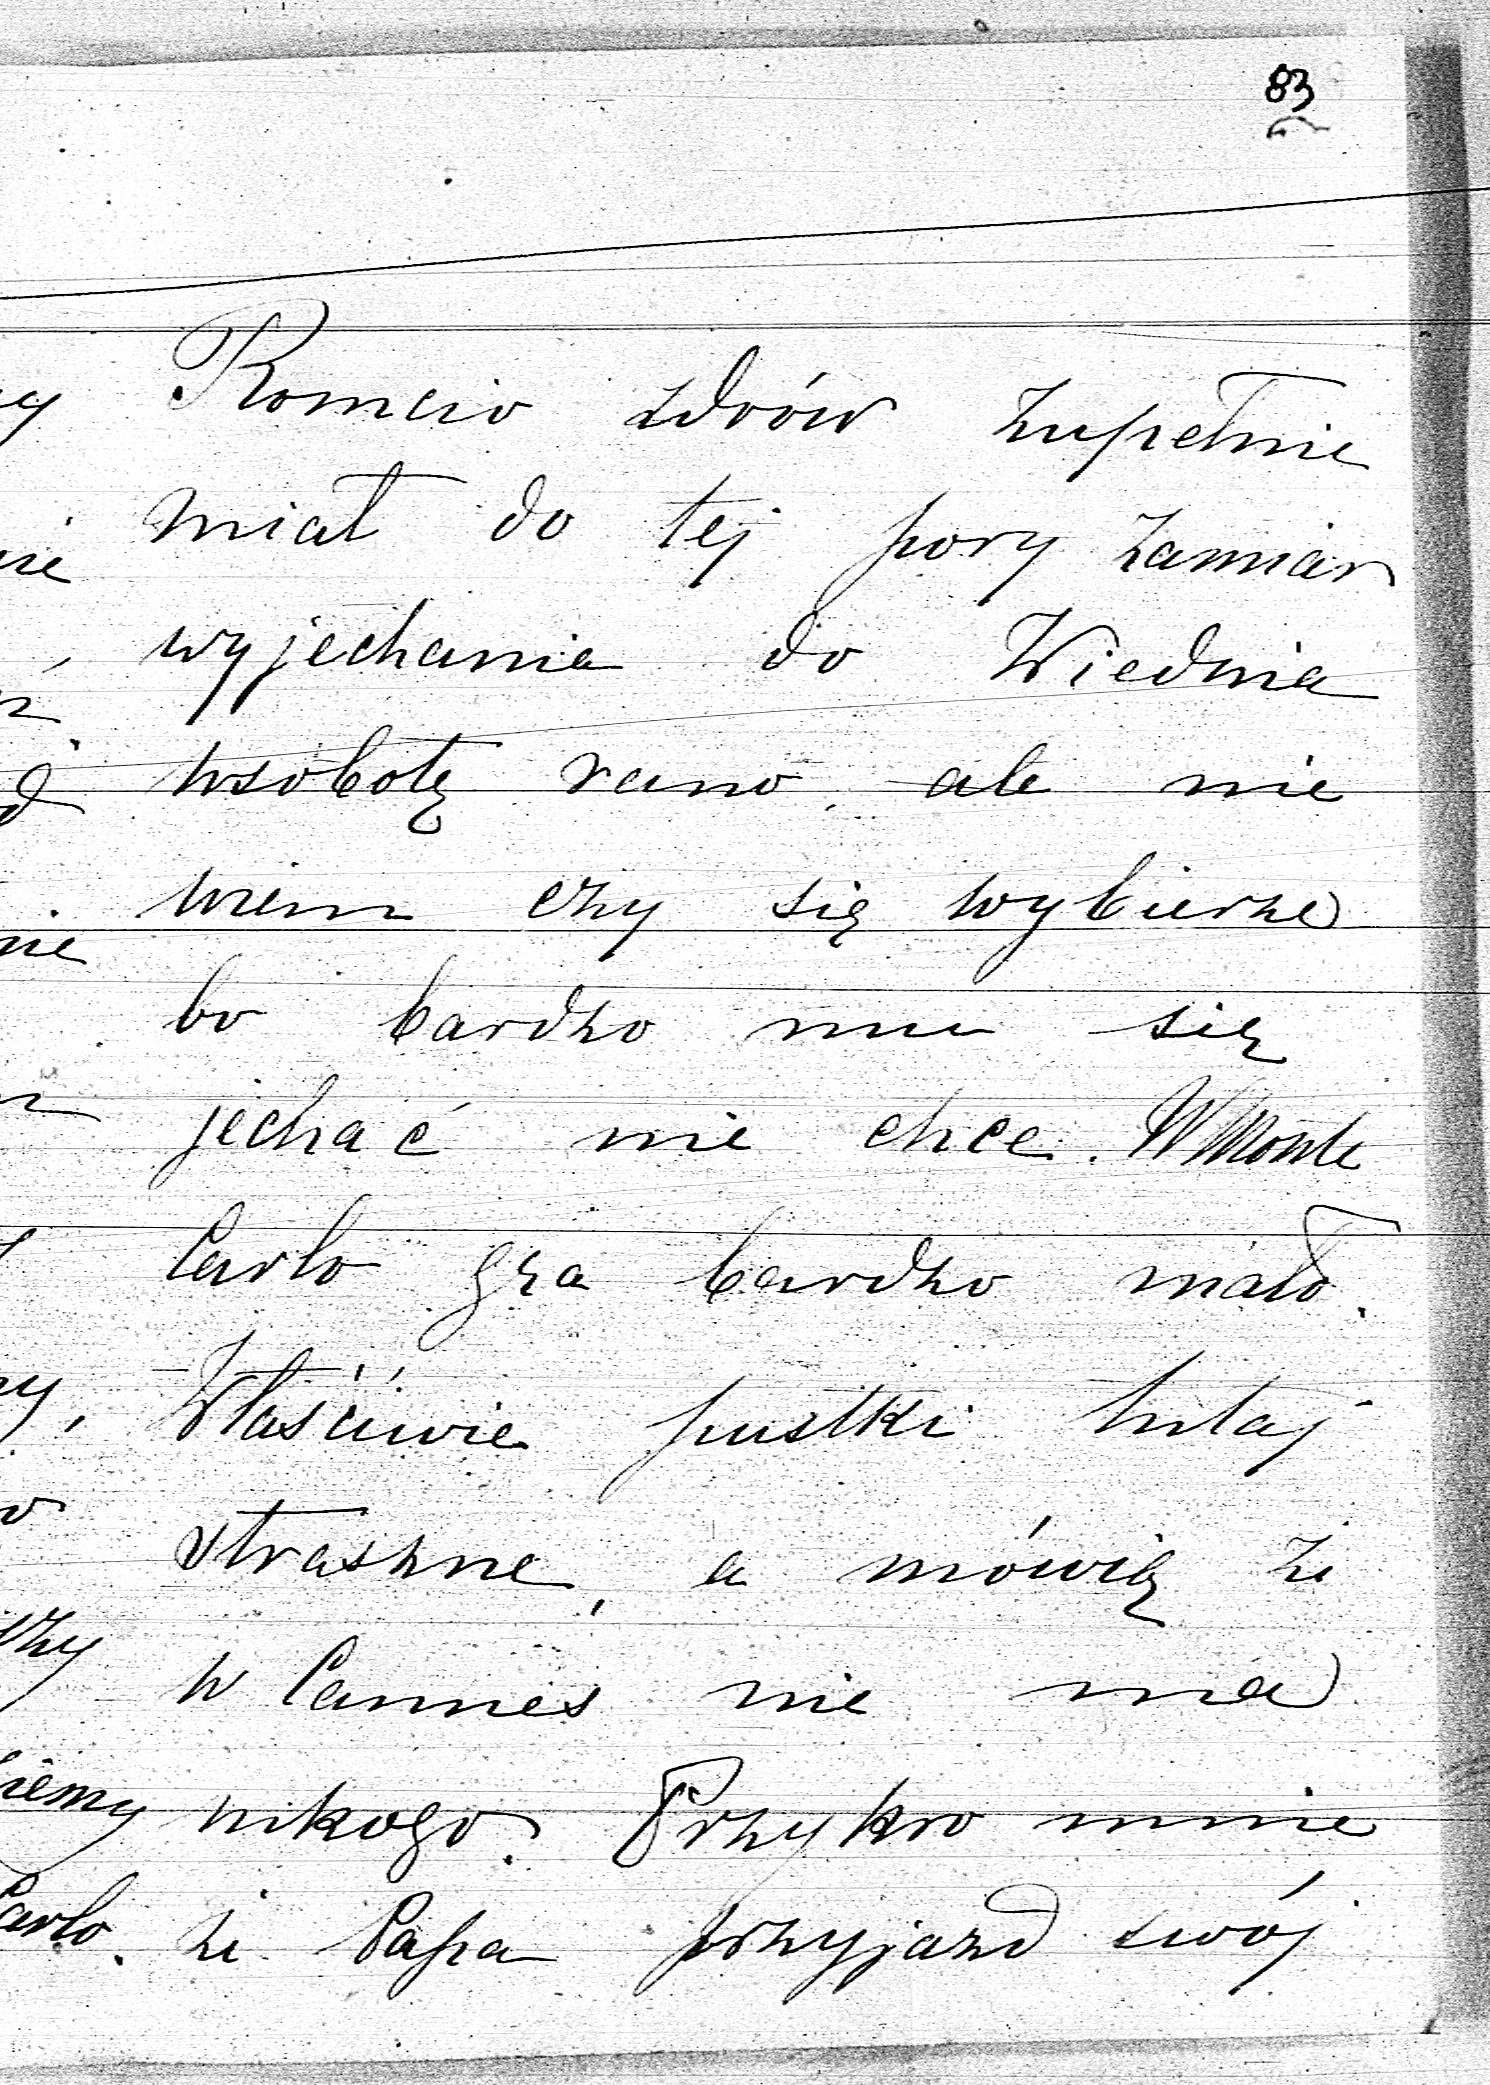 83
Romcio zdrów zupełnie
miał do tej pory zamiar
wyjechania do Wiednia
wsobotę rano, ale nie
wiem czy się wybierze
bo bardzo mu się
jechać nie chce. W Monte
Carlo gra bardzo mało.
Właściwie pustki tutaj
straszne, a mówią że
w Cannes nie ma
nikogo. Przykro mnie
że Papa przyjazd swój